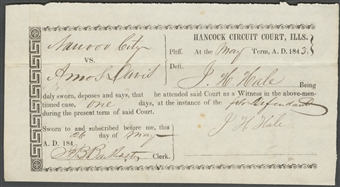 HANCOCK CIRCUIT COURT, ILLS.
Nauvoo City
Pltff. At the May Term, A. D. 1843
VS.
Deft.
Amos Davis
J. H. Hale Being
duly sworn, deposes and says, that he attended said Court as a Witness in the above-men-
tioned case, one days, at the instance of the Defendant
during the present term of said Court.
J H Hale
Sworn to and subscribed before me, this
26 day of May
A. D. 184
Clerk.